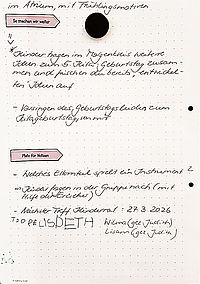 im Atrium, mit Frühlingsmotiven
So machen wir weiter
* Kinder tragen im Morgenkreis weitere
Ideen zum 5. Kita-Geburtstag zusam-
men und mischen die bereits entwickel-
ten Ideen auf
- Vorsingen des Geburtstagsliedes zum
Kitageburtstag
Platz für Notizen
- Welches Elternteil spielt ein Instrument ?
Kinder fragen in der Gruppe nach (mit
Hilfe der Erzieher)
- Nächster Treff Kinderrat: 27.3.2026
LISBETH
Wilma (gez. Judith)
(gez. Judith)